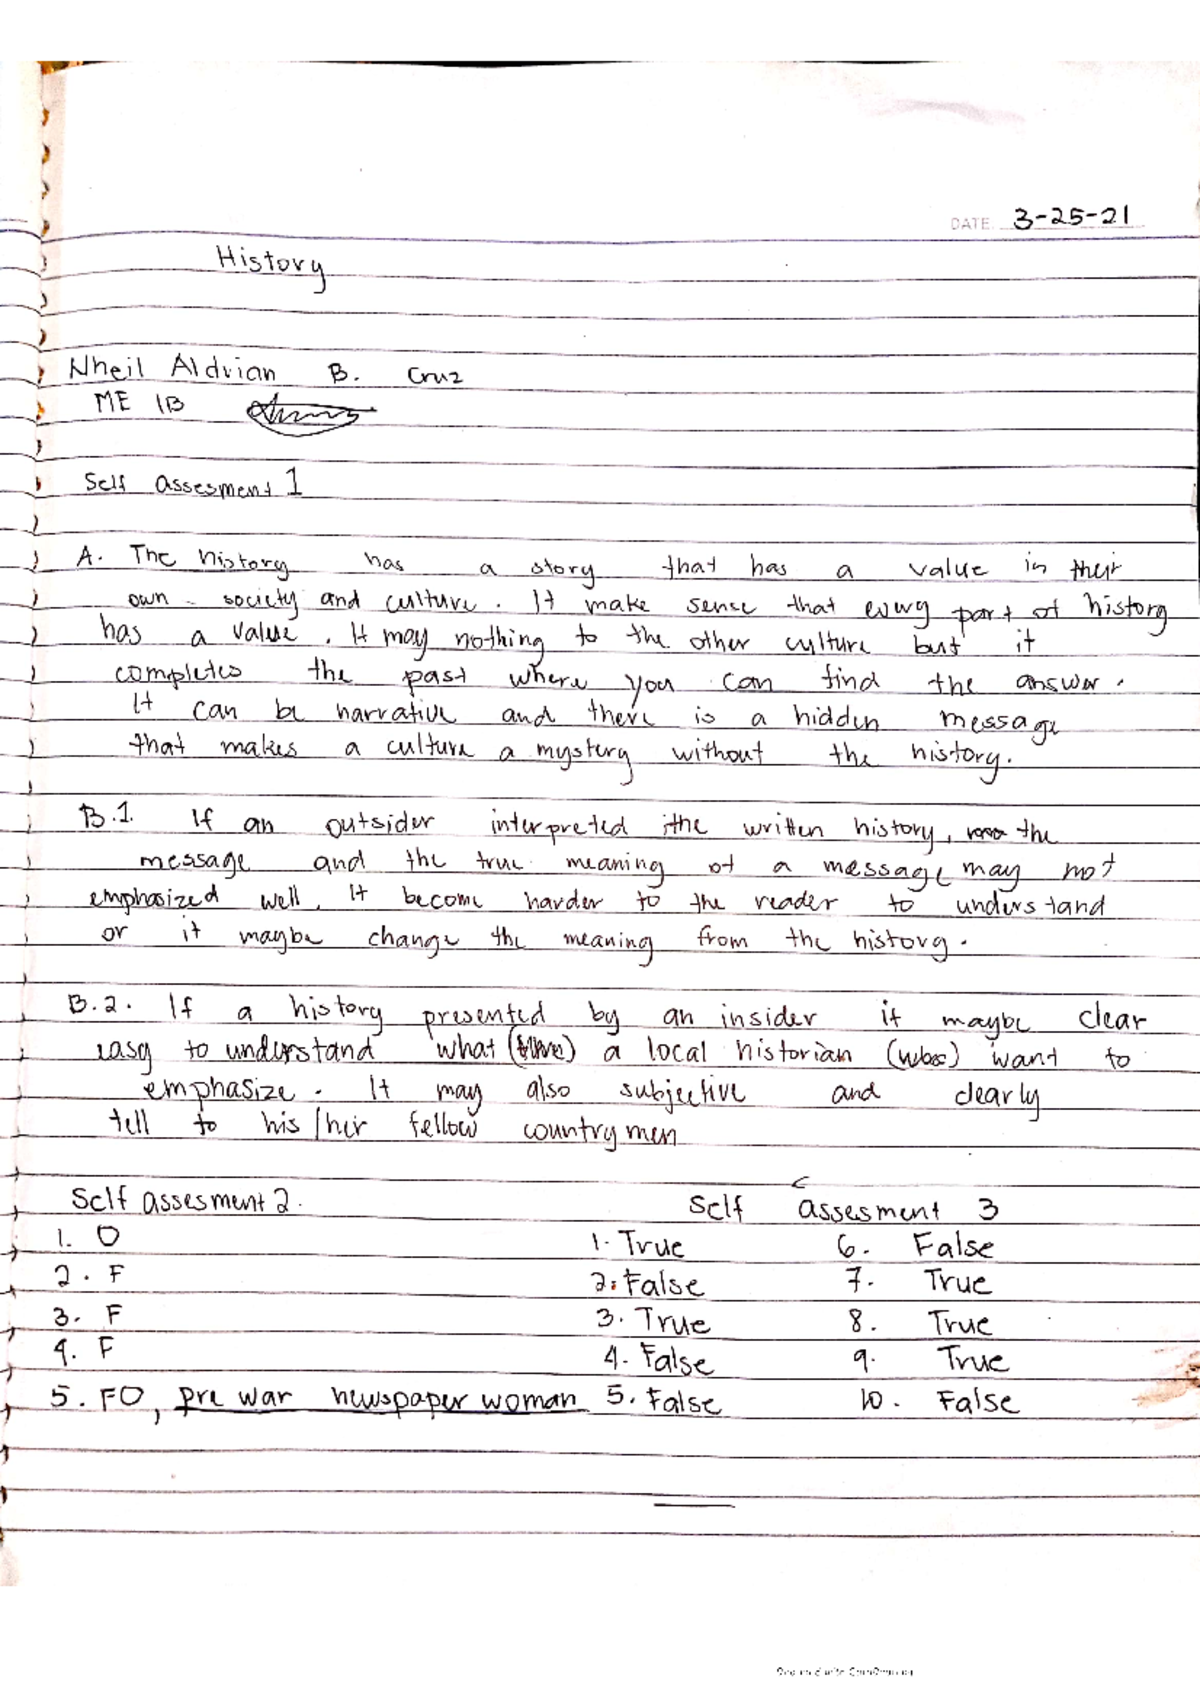 DATE 3-25-21
History
Nheil Aldrian B. Cruz
ME 1B
Self assesment 1
A. The history has a story that has a value in their
own society and culture. It make sense that every part of history
has a value. It may nothing to the other culture but it
completes the past where you can find the answer.
It can be narrative and there is a hidden message
that makes a culture a mystery without the history.
B.1. If an outsider interpreted the written history, the
message and the true meaning of a message may not
emphasized well. It become harder to the reader to understand
or it maybe change the meaning from the history.
B.2. If a history presented by an insider it maybe clear
easy to understand what a local historian want to
emphasize. It may also subjective and clearly
tell to his/her fellow countrymen
Self assesment 2.
1. O
2. F
3. F
4. F
5. FO, pre war newspaper woman
Self assesment 3
1. True
2. False
3. True
4. False
5. False
6. False
7. True
8. True
9. True
10. False